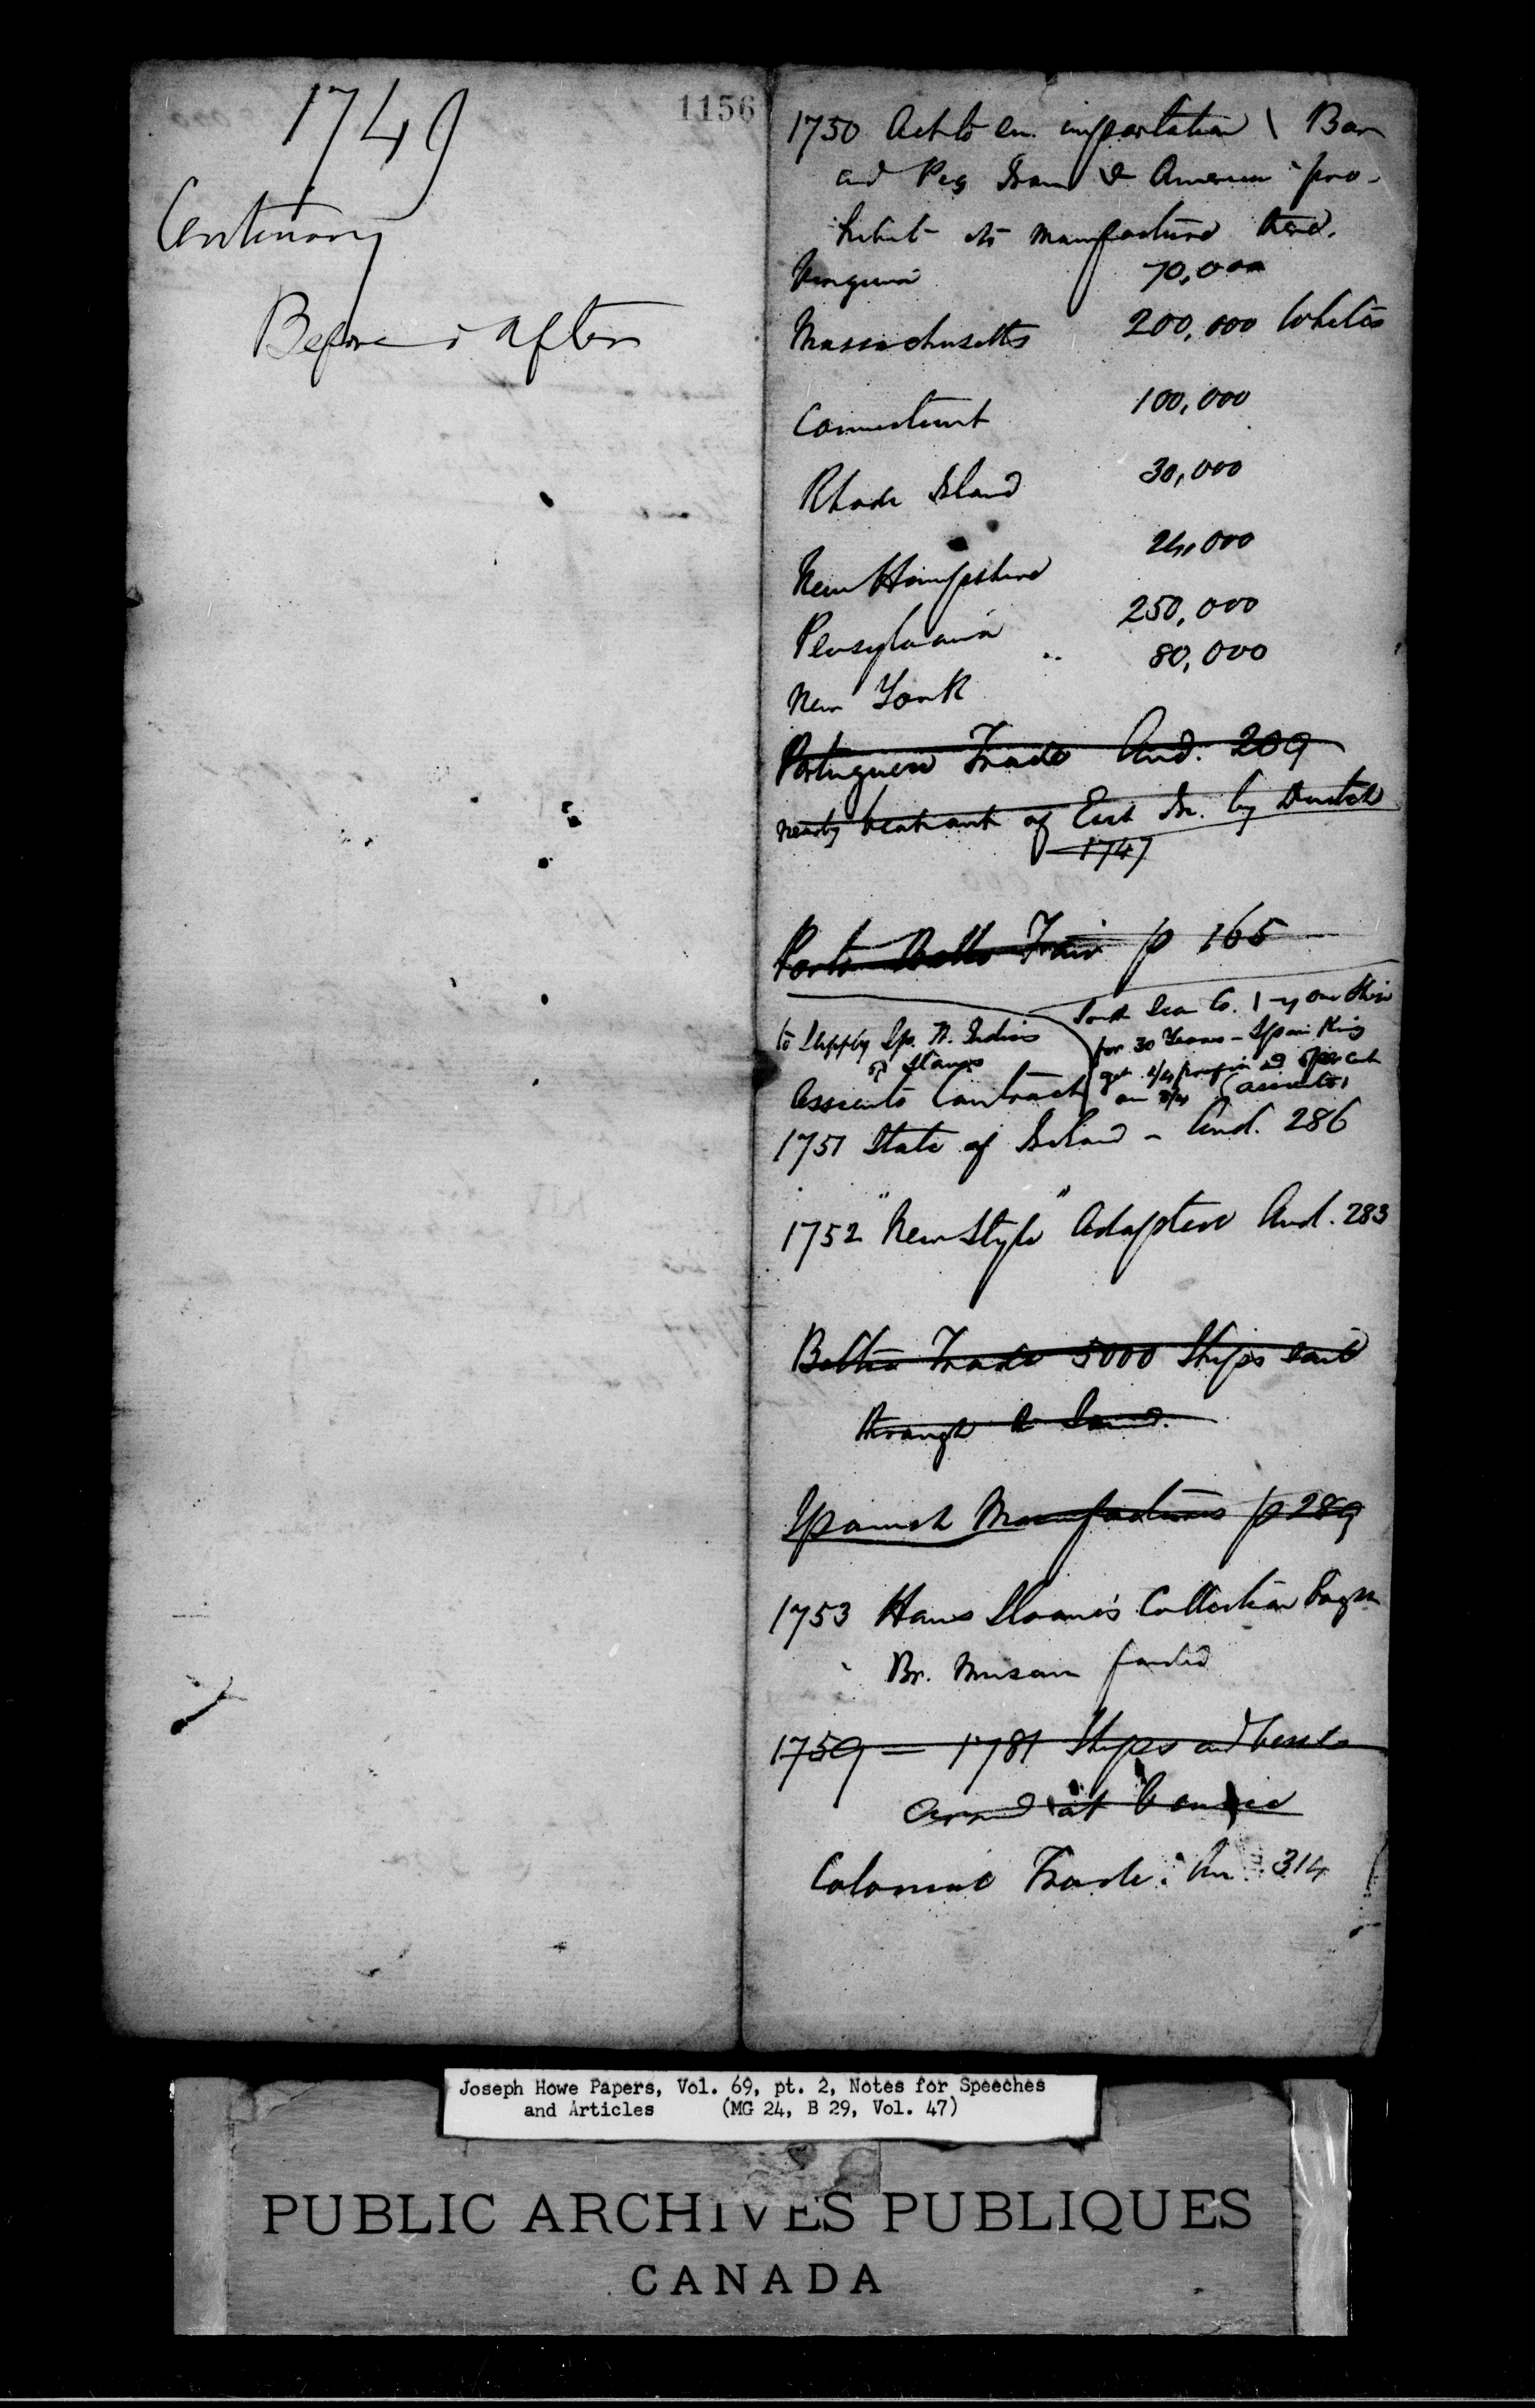 1749
Centenary
Before & after
1156
1750 Act to en. importation Bar
and Peg Iron & America pro-
hibit its manufacture there.
Virginia 70,000
Massachusetts 200,000 Whites
Connecticut 100,000
Rhode Island 30,000
New Hampshire 24,000
Pensylvania 250,000
New York 80,000
Portuguese Trade And. 209
nearly of East In. by Dutch
1747
Porto Bello Fair p 165
South Sea Co. one Ship
to Supply Sp. W. Indies
for 30 Years - Spain King
of Slaves
get 1/4 profit and 5 per cent
Assiento Contract
on 3/4 (assiento)
1751 State of Ireland - And. 286
1752 "New Style" Adopted And. 283
Baltic Trade 5000 Ships sail
through the Sound.
Spanish Manufactures p 289
1753 Hans Sloane's Collection bogn
Br. Museum founded
1759 = 1781 Ships and Vessels
at
Colonial Trade. An 314
Joseph Howe Papers, Vol. 69, pt. 2, Notes for Speeches
and Articles (MG 24, B 29, Vol. 47)
PUBLIC ARCHIVES PUBLIQUES
CANADA